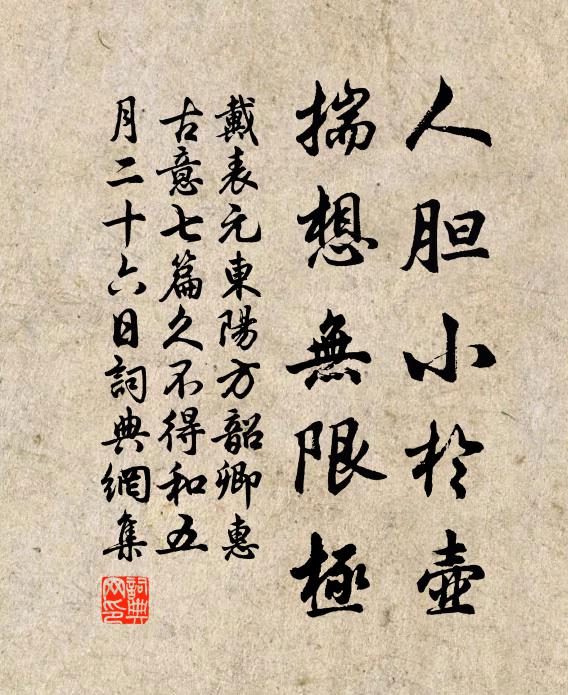 人胆小於壺
揣想無限極
戴表元東陽方韶卿惠
古意七篇久不得和五
月二十六日詞典網集
詞典
网印